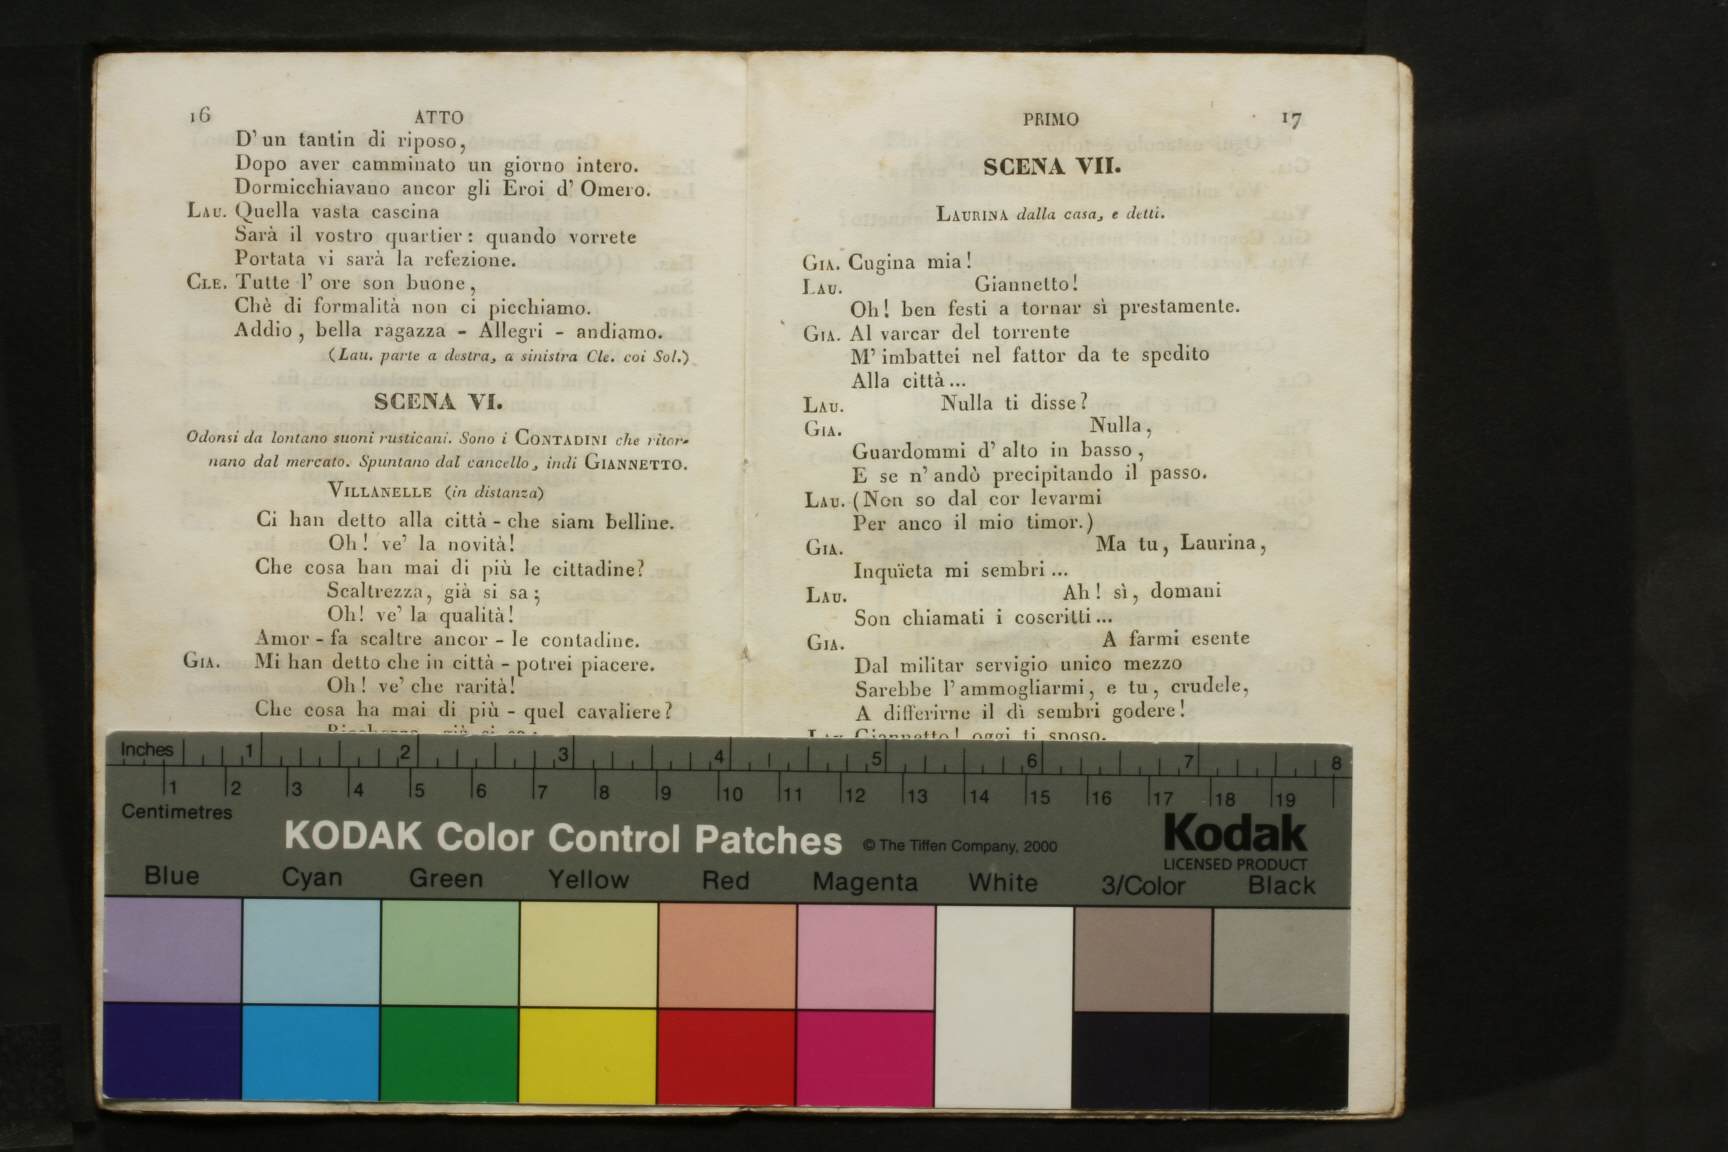 16 ATTO
D' un tantin di riposo,
Dopo aver camminato un giorno intero.
Dormicchiavano ancor gli Eroi d' Omero.
LAU. Quella vasta cascina
Sarà il vostro quartier: quando vorrete
Portata vi sarà la refezione.
CLE. Tutte l' ore son buone,
Chè di formalità non ci picchiamo.
Addio, bella ragazza - Allegri - andiamo.
(Lau. parte a destra, a sinistra Cle. coi Sol.)
SCENA VI.
Odonsi da lontano suoni rusticani. Sono i CONTADINI che ritor-
nano dal mercato. Spuntano dal cancello, indi GIANNETTO.
VILLANELLE (in distanza)
Ci han detto alla città - che siam belline.
Oh! ve' la novità!
Che cosa han mai di più le cittadine?
Scaltrezza, già si sa;
Oh! ve' la qualità!
Amor - fa scaltre ancor - le contadine.
GIA. Mi han detto che in città - potrei piacere.
Oh! ve' che rarità!
Che cosa ha mai di più - quel cavaliere?
PRIMO 17
SCENA VII.
LAURINA dalla casa, e detti.
GIA. Cugina mia!
LAU. Giannetto!
Oh! ben festi a tornar sì prestamente.
GIA. Al varcar del torrente
M' imbattei nel fattor da te spedito
Alla città...
LAU. Nulla ti disse?
GIA. Nulla,
Guardommi d' alto in basso,
E se n' andò precipitando il passo.
LAU. (Non so dal cor levarmi
Per anco il mio timor.)
GIA. Ma tu, Laurina,
Inquïeta mi sembri...
LAU. Ah! sì, domani
Son chiamati i coscritti...
GIA. A farmi esente
Dal militar servigio unico mezzo
Sarebbe l' ammogliarmi, e tu, crudele,
A differirne il dì sembri godere!
Giannetto! oggi ti sposo.
Inches 1 2 3 4 5 6 7 8
1 2 3 4 5 6 7 8 9 10 11 12 13 14 15 16 17 18 19
Centimetres
KODAK Color Control Patches © The Tiffen Company, 2000 Kodak
LICENSED PRODUCT
Blue Cyan Green Yellow Red Magenta White 3/Color Black